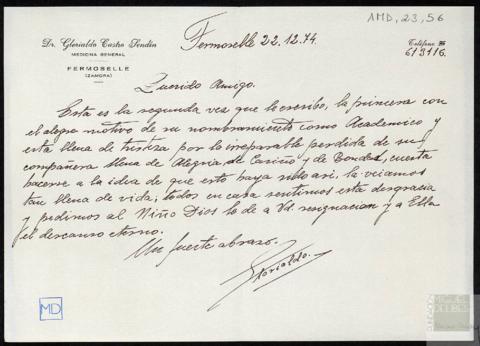 AMD, 23, 56
Dr. Glorialdo Castro Sendín
MEDICINA GENERAL
FERMOSELLE
(ZAMORA)
Fermoselle 22.12.74.
Teléfono 36
613116.
Querido Amigo.
Esta es la segunda vez que le escribo, la primera con
el alegre motivo de su nombramiento como Academico y
esta llena de tristeza por la irreparable perdida de su
compañera llena de Alegria de Cariño y de Bondad, cuesta
hacerse a la idea de que esto haya sido asi, la veiamos
tan llena de vida; todos en casa sentimos esta desgracia
y pedimos al Niño Dios le de a Vd. resignacion y a Ella
el descanso eterno.
Un fuerte abrazo.
Glorialdo.
MD
FUNDACIÓN
MIGUEL
DELIBES